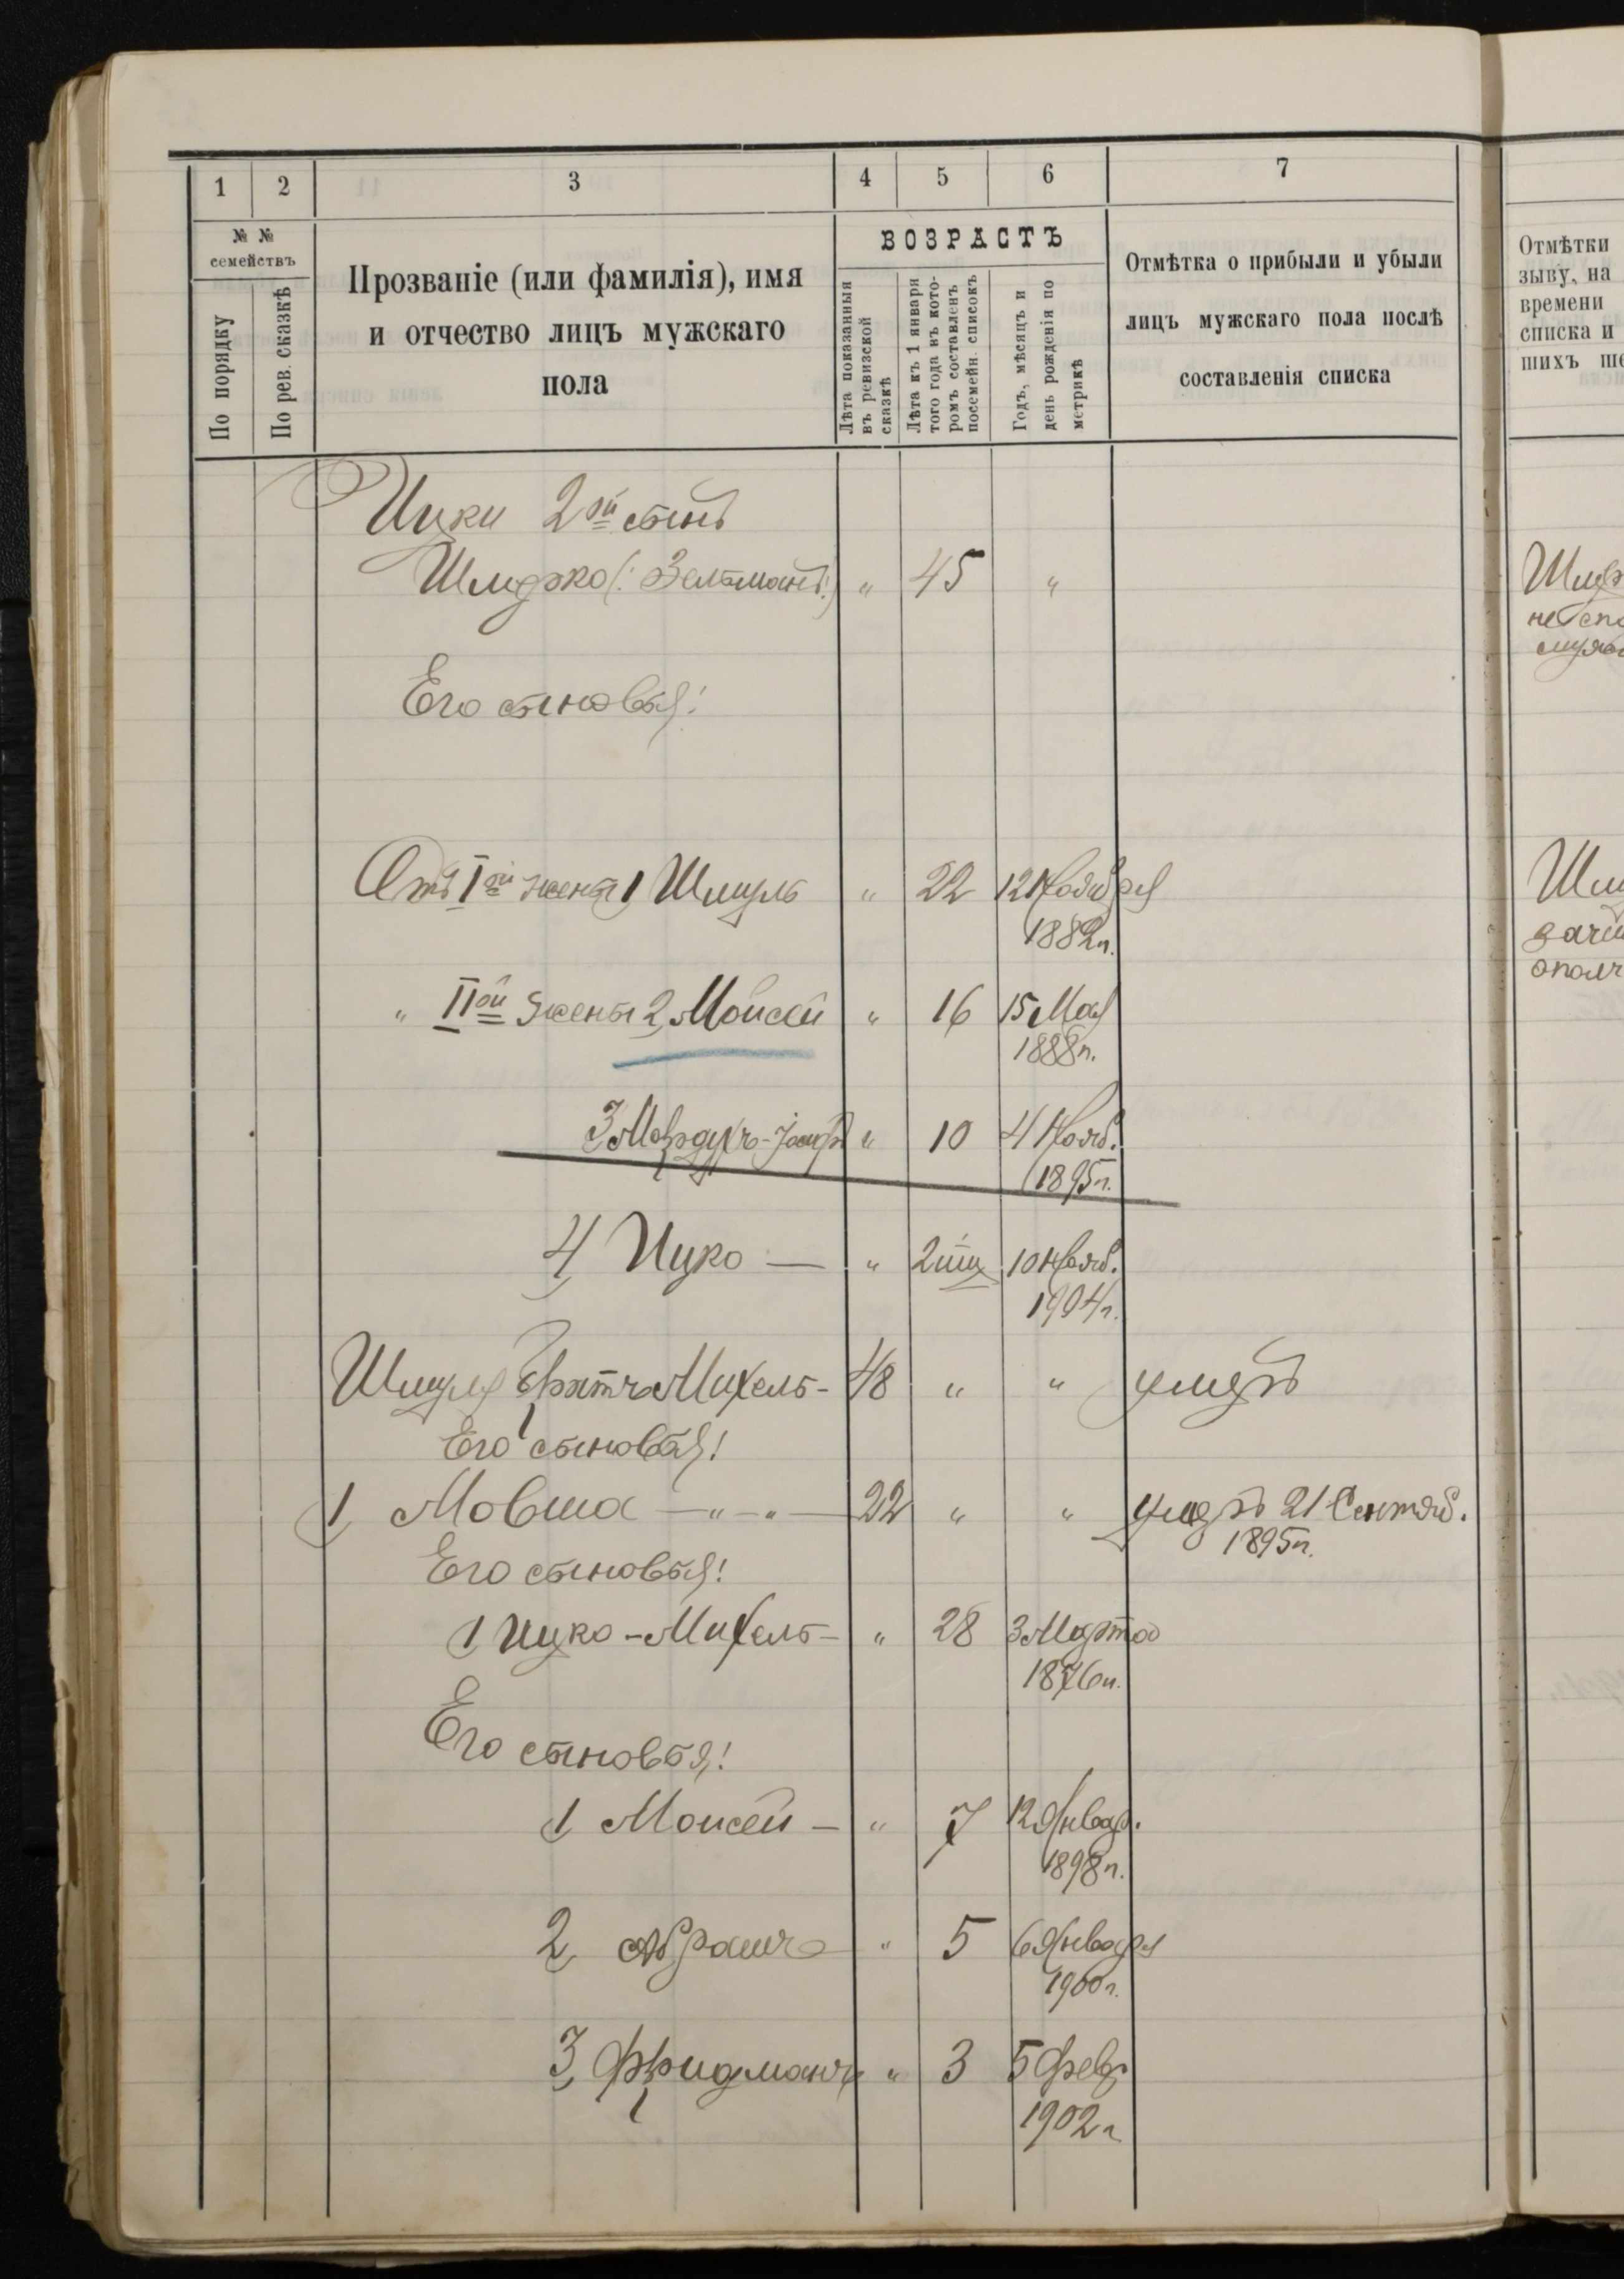 1 2 3 4 5 6 7
№ № семействъ
По порядку
По рев. сказкѣ
Прозваніе (или фамилія), имя
и отчество лицъ мужскаго
пола
ВОЗРАСТЪ
Лѣта показанныя
въ ревизской
сказкѣ
Лѣта къ 1 января
того года въ кото-
ромъ составленъ
посемейн. списокъ
Годъ, мѣсяцъ и
день рожденія по
метрикѣ
Отмѣтка о прибыли и убыли
лицъ мужскаго пола послѣ
составленія списка
Отмѣтки
зыву, на
времени
списка и
шихъ
Ицки 2ой сынъ
Шмерко (: Зельманъ :) " 45 "
не
Его сыновья:
Отъ Iой жены 1, Шмуль " 22 12 Ноября
1882 г.
" IIой жены 2, Мойсей " 16 15 Мая
1888 г.
3, Мордухъ-Іосифъ " 10 4 Нояб.
1895 г.
4, Ицко — " 2 10 Нояб.
1904 г.
Шмуля братъ Михель - 48 " " умеръ
Его сыновья:
1, Мовша — " — " — 22 " " умеръ 21 Сентяб.
1895 г.
Его сыновья:
1, Ицко - Михель - " 28 3 Марта
1876 г.
Его сыновья:
1, Мойсей - " 7 12 Январ.
1898 г.
2, Абрамъ " 5 6 Января
1900 г.
3, Фридманъ " 3 5 Февр.
1902 г.